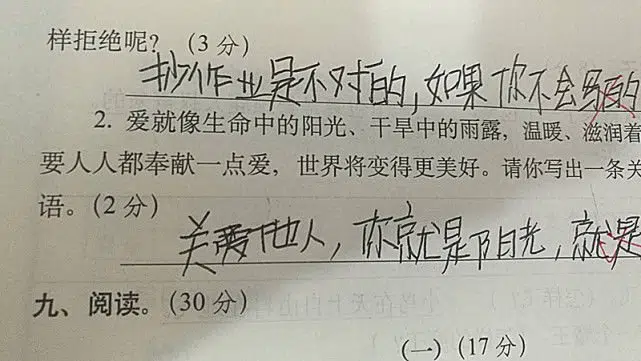 样拒绝呢？（3分）
抄作业是不对的，如果你不会
2. 爱就像生命中的阳光、干旱中的雨露，温暖、滋润着
要人人都奉献一点爱，世界将变得更美好。请你写出一条关
语。（2分）
关爱他人，你就是阳光，就是
九、阅读。（30分）
（一）（17分）